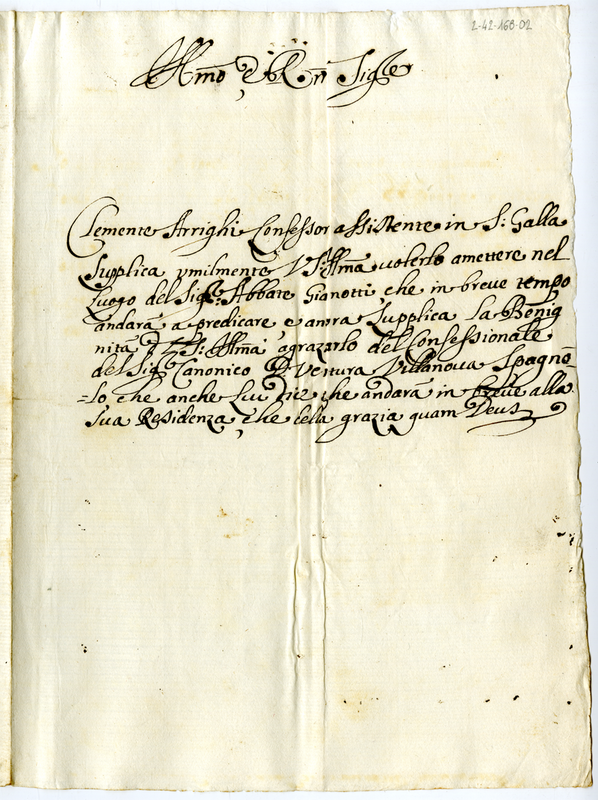 2-42-168-02
Illmo e Rn Sigre
Clemente Arrighi Confessor assistente in S: Galla
Supplica vmilmente V S: Illma volerlo amettere nel
luogo del Sigr: Abbate Gianotti che in breve tempo
andarà a predicare, e anra Supplica la Benig
nità di V S: Illma agrazarlo del Confessionale
del Sigr Canonico Ventura Villanova Spagno=
=lo che anche lui dice che andarà in breve alla
sua Residenza, che della grazia quam Deus